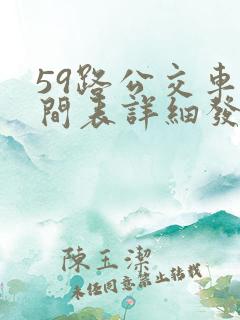 59路公交車
間表詳細發
陳玉潔
未经同意禁止转载